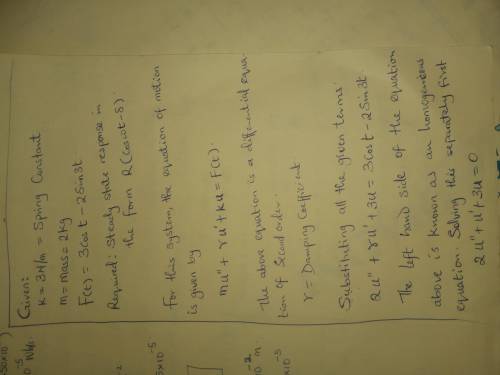 Given:
K = 3N/m = Spring Constant
m = Mass = 2kg
F(t) = 3cost - 2Sin3t
Required: Steady state response in
the form R(coswt-δ)
For this system, the equation of motion
is given by
mu" + ru' + ku = F(t).
The above equation is a differential equa-
tion of Second order.
r = Damping Coefficient
Substituting all the given terms
2u" + ru' + 3u = 3cost - 2Sin3t
The left hand side of the equation
above is known as an homogeneous
equation. Solving this separately first
2u" + u' + 3u = 0
50x10
0⁻⁵ Wb.
-2
5x10⁻⁵
10⁻² m.
x10⁻⁵